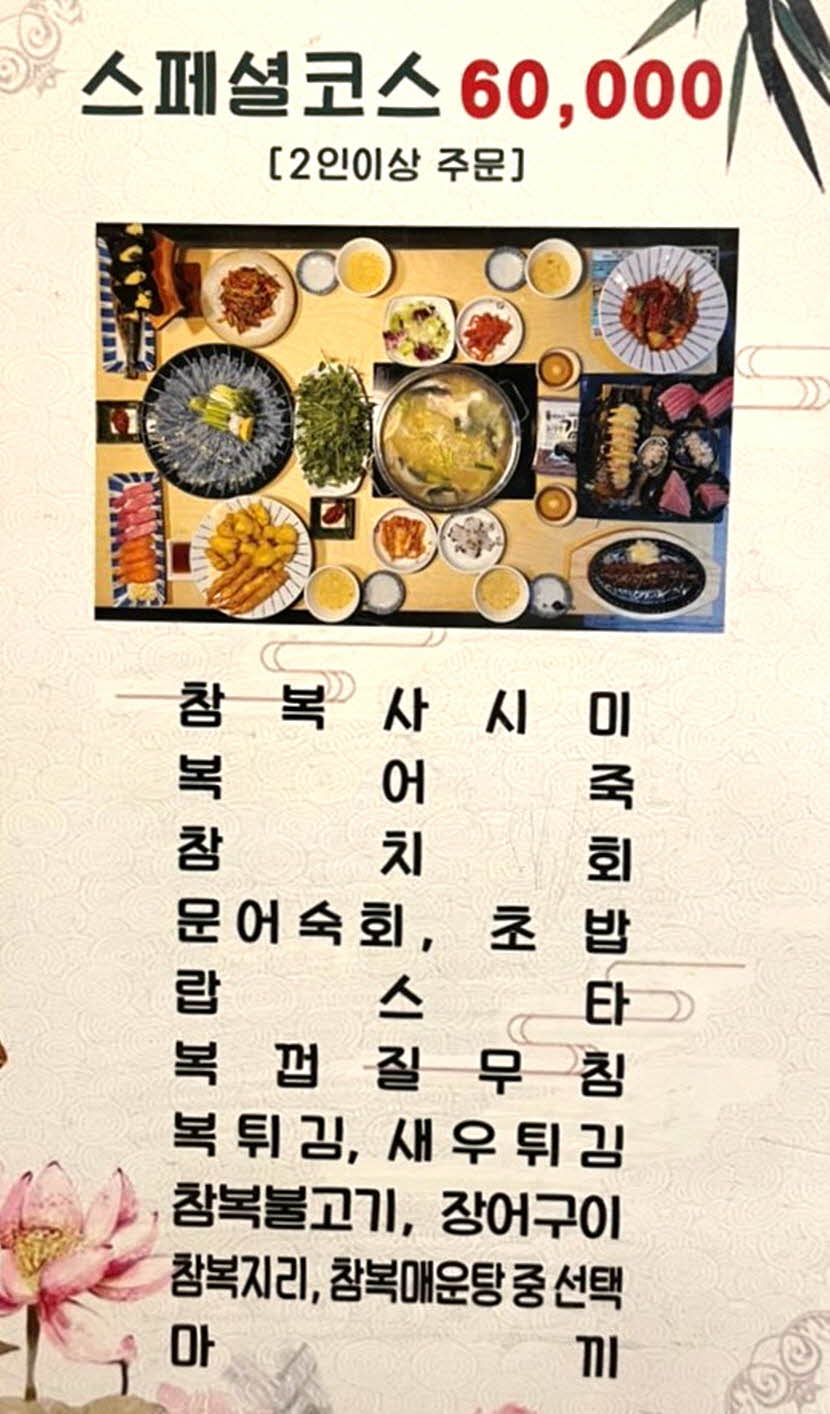 스페셜코스 60,000
[2인이상 주문]
참복사시미
복어죽
참치회
문어숙회, 초밥
랍스타
복껍질무침
복튀김, 새우튀김
참복불고기, 장어구이
참복지리, 참복매운탕 중 선택
마끼